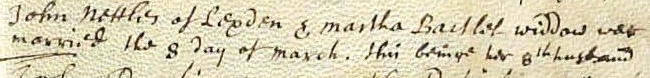 John Nettles of Lexden & martha Bartlet widdow wer
married the 8 day of march. this beinge her 8th husband